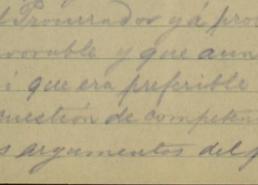 l Procurador y á pro
vorable y que aun
i que era preferible
cuestión de competen
s argumentos del p